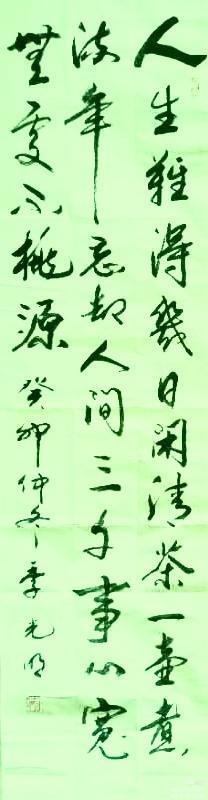 人生難得幾日閑清茶一壺煮
流年忘却人間三千事心寬
無處不桃源癸卯仲冬季光明